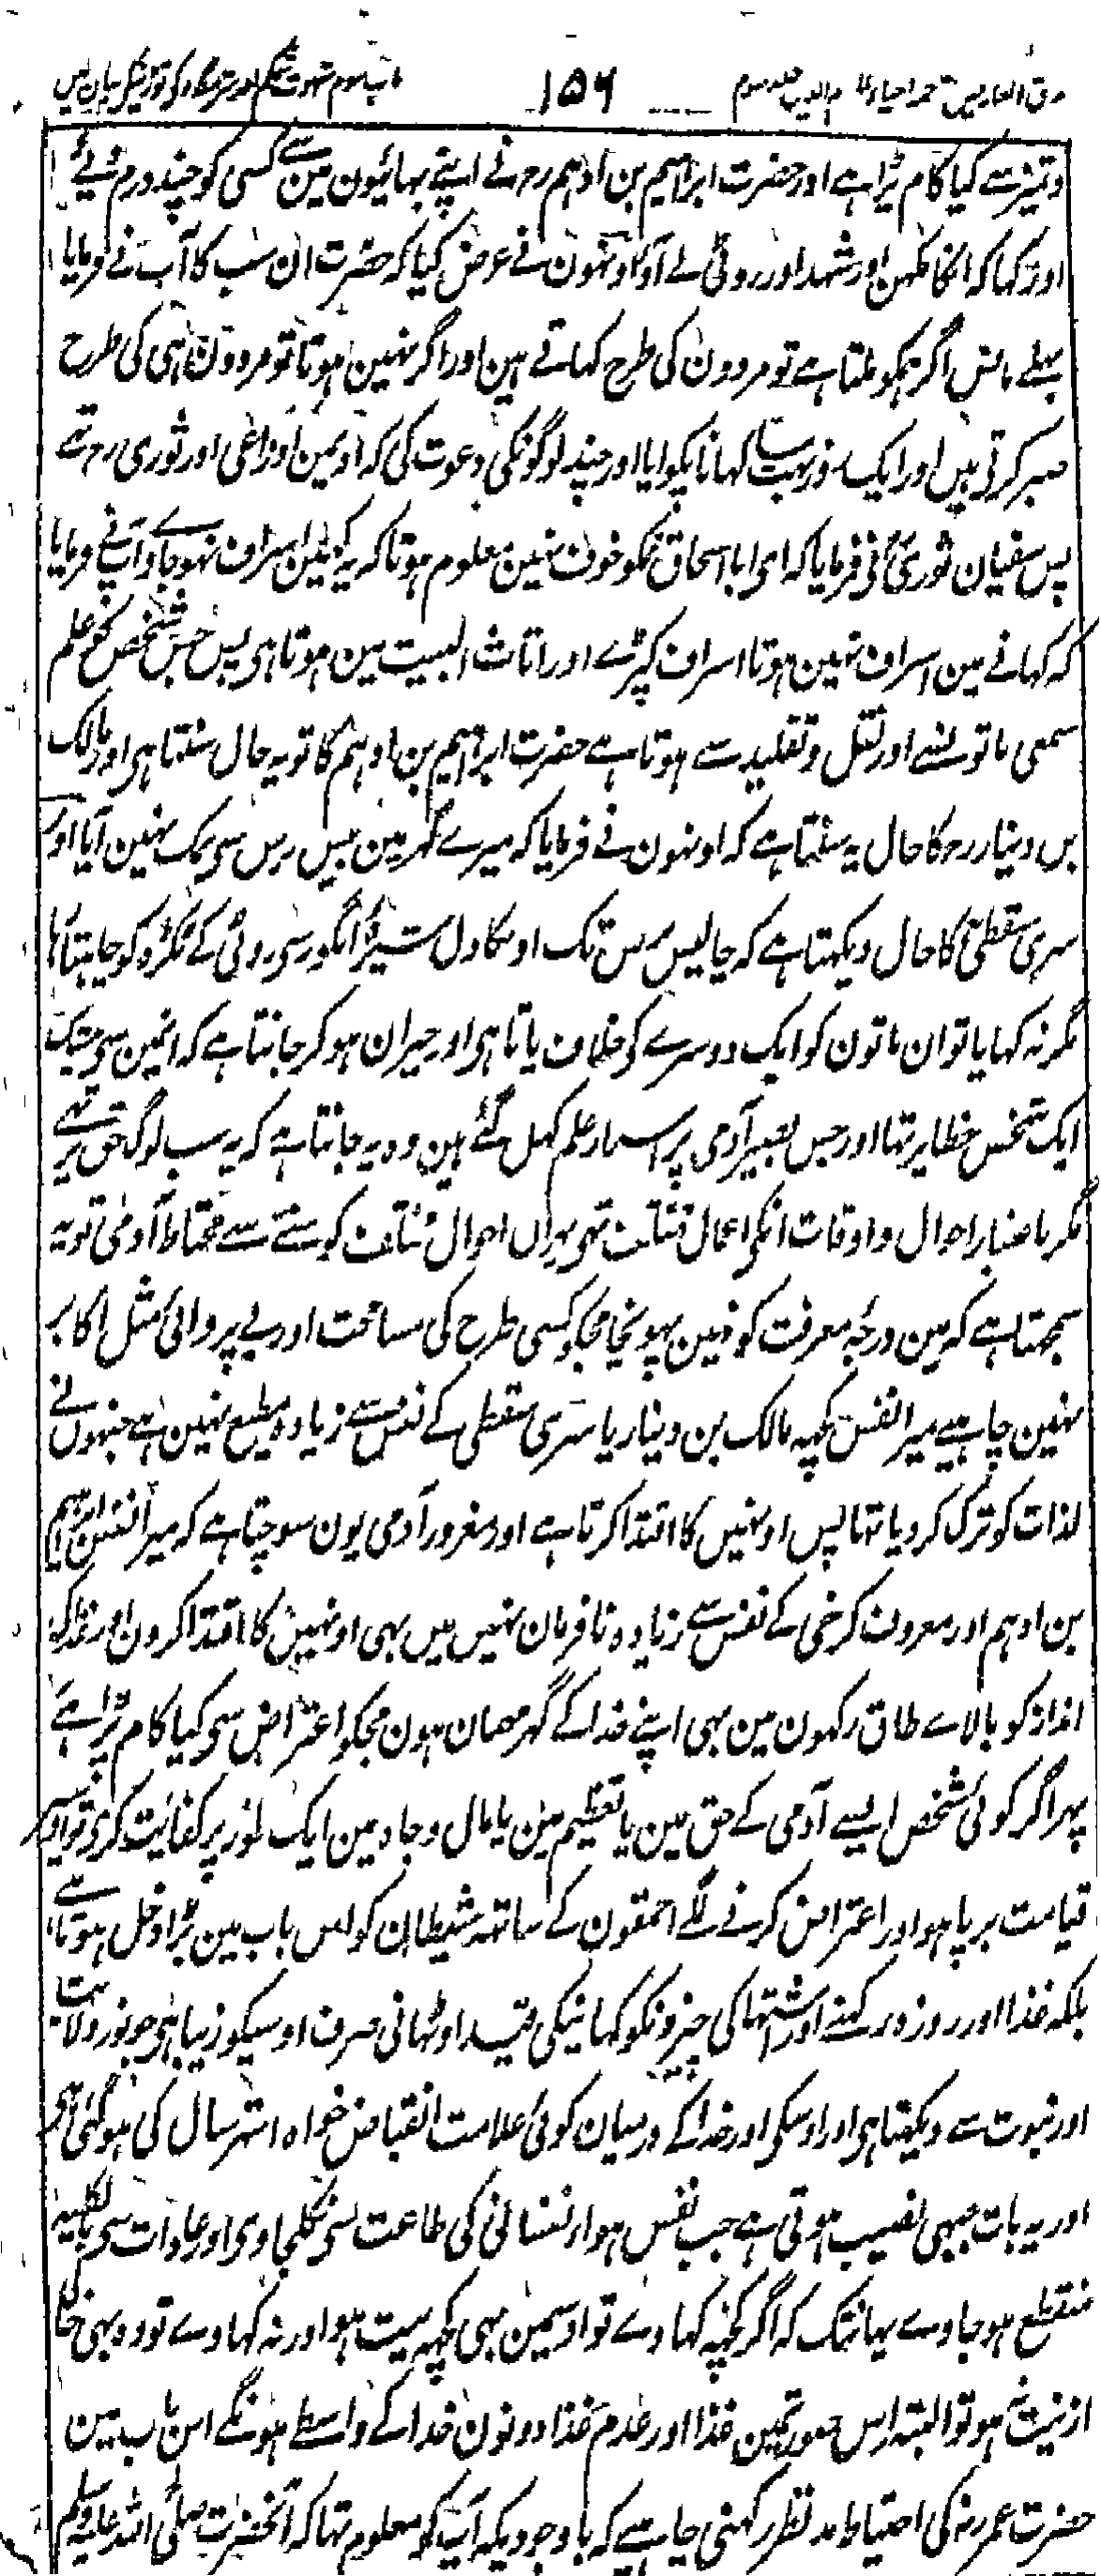 مذاق العارفین ترجمہ احیاء علوم الدین جلد سوم ۱۵۶ باب سوم شہوت شکم اور شرمگاہ کے توڑنیکے بیان میں
وتمیز سے کیا کام پڑا ہے اور حضرت ابراہیم بن ادہم رح نے اپنے بہائیون مین سے کسی کو چند درم دیئے
اور کہا کہ انکا مکہن اور شہد اور روٹی لے آؤ اونہون نے عرض کیا کہ حضرت ان سب کا آپ نے فرمایا
بھلے مانس اگر ہمکو ملتا ہے تو مردون کی طرح کہاتے ہین اور اگر نہین ہوتا تو مردون ہی کی طرح
صبر کرتے ہیں اور ایک روز بہت سا کہانا پکوایا اور چند لوگونکی دعوت کی کہ اونمین اوزاعی اور ثوری رح تھے
پس سفیان ثوری نے فرمایا کہ ای ابا اسحاق تمکو خوف نہین معلوم ہوتا کہ یہ کہین اسراف نہو جاوے آپنے فرمایا
کہ کہانے مین اسراف نہین ہوتا اسراف کپڑے اور اثاث البیت مین ہوتا ہی پس جس شخص کو علم
سمعی باتون سے اور نقل و تقلید سے ہوتا ہے حضرت ابراہیم بن ادہم کا تو یہ حال سنتا ہی اور مالک
بن دینار رح کا حال یہ سنتا ہے کہ اونہون نے فرمایا کہ میرے گھر مین بیس برس سی نمک نہین آیا اور
سری سقطی کا حال دیکہتا ہے کہ چالیس برس تک اونکا دل شیرۂ انگور سی روٹی کے ٹکڑہ کو چاہتا رہا
مگر نہ کہایا تو ان باتون کو ایک دوسرے کے خلاف پاتا ہی اور حیران ہو کر جانتا ہے کہ انمین سی بیشک
ایک شخص خطا پر تہا اور جس بصیر آدمی پر اسرار علم کہل گئے ہین وہ یہ جانتا ہے کہ یہ سب لوگ حق پر تھے
مگر باعتبار احوال و اوقات انکی اعمال مختلف تہی پہر ان احوال مختلف کو سننے سے محتاط آدمی تو یہ
سمجہتا ہے کہ مین درجۂ معرفت کو نہین پہونچا مجکو کسی طرح کی مسامحت اور بے پروائی مثل اکابر
نہین چاہیے میرا نفس کچہ مالک بن دینار یا سری سقطی کے نفس سے زیادہ مطیع نہین ہے جنہوں نے
لذات کو ترک کر دیا تہا پس اونہیں کا اقتدا کرتا ہے اور مغرور آدمی یون سوچتا ہے کہ میرا نفس ابراہیم
بن ادہم اور معروف کرخی کے نفس سے زیادہ نافرمان نہیں میں بہی اونہین کا اقتدا کرون اور غذا کے
انداز کو بالاے طاق رکہون مین بہی اپنے خدا کے گہر مہمان ہون مجکو اعتراض سی کیا کام پڑا ہے
پہر اگر کوئی شخص ایسے آدمی کے حق مین یا تعظیم مین یا مال و جاہ مین ایک طور پر کفایت کرے تو اوسپر
قیامت برپا ہو اور اعتراض کرنے لگے احمقون کے ساتہ شیطان کو اس باب مین بڑا دخل ہوتا ہے
بلکہ غذا اور روزہ رکہنے اور اشتہا کی چیزونکو کہانیکی قید اوٹہانی صرف اوسیکو زیبا ہی جو نور ولایت
اور نبوت سے دیکہتا ہی اور اوسکی اور خدا کے درمیان کوئی علامت انقباض خواہ استرسال کی ہو گئی ہی
اور یہ بات جبہی نصیب ہوتی ہے جب نفس ہواء نفسانی کی طاعت سی نکلجاوی اور عادات سی بالکلیہ
منقطع ہو جاوے یہانتک کہ اگر کچہ کہاوے تو اوسمین بہی کچہ نیت ہو اور نہ کہاوے تو وہ بہی خالی
از نیت نہو تو البتہ اس صورتمین غذا اور عدم غذا دونون خدا کے واسطے ہونگے اس باب مین
حضرت عمر رض کی احتیاط مد نظر رکہنی چاہیے کہ باوجودیکہ آپ کو معلوم تہا کہ آنحضرت صلی اللہ علیہ وسلم